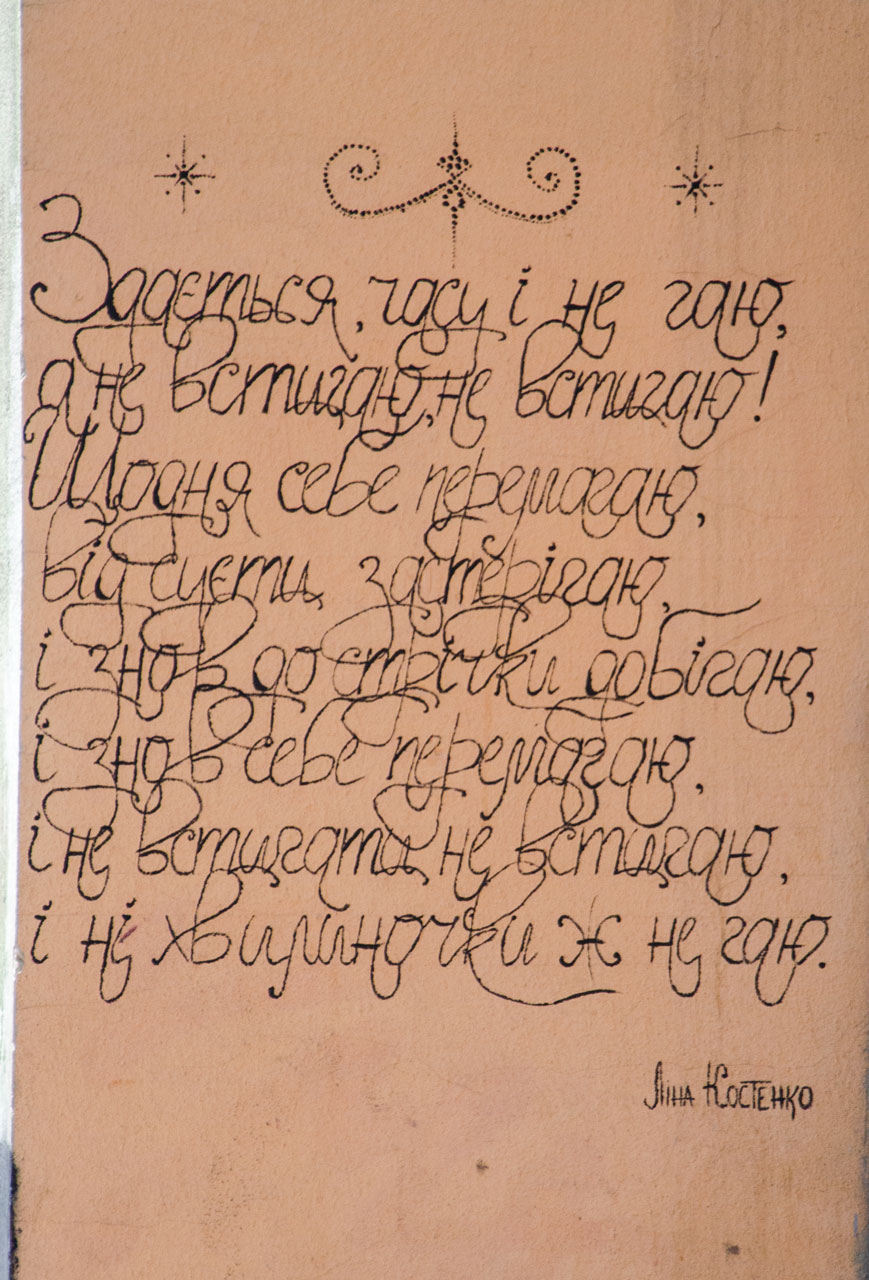 Здається, часу і не гаю,
а не встигаю, не встигаю!
Щодня себе перемагаю,
від суєти застерігаю,
і знов до стрічки добігаю,
і знов себе перемагаю,
і не встигати, не встигаю,
і ні хвилиночки ж не гаю.
Ліна Костенко